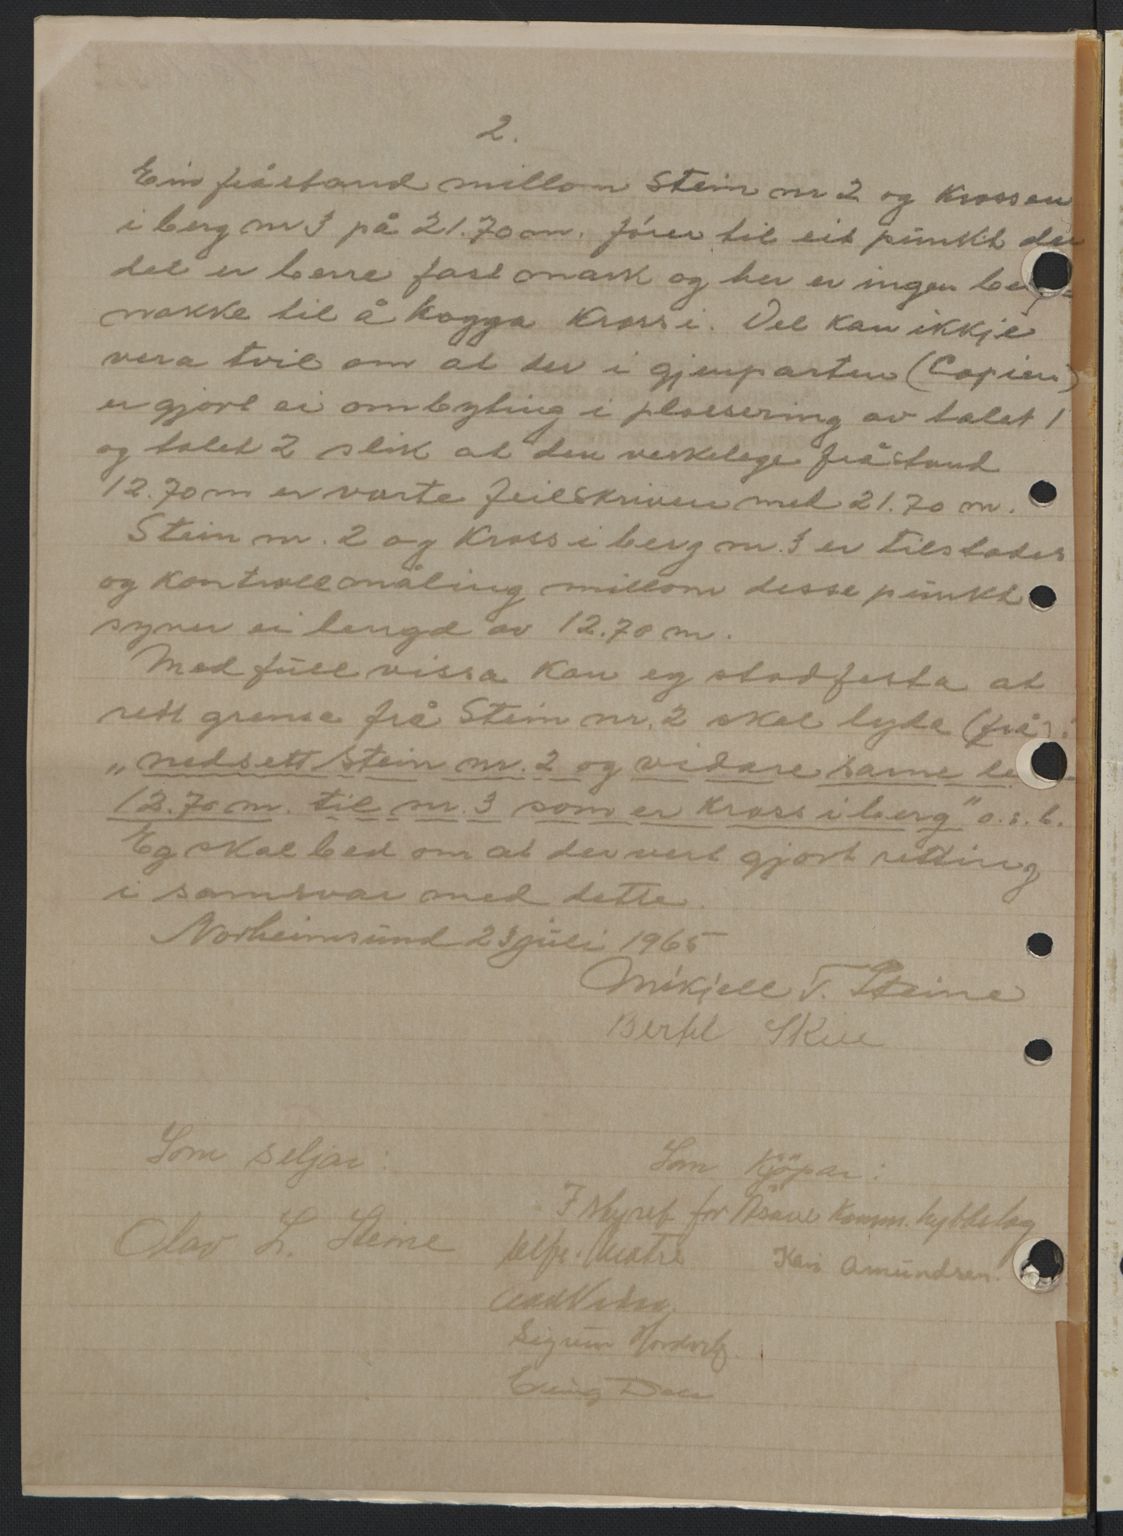 2.
Ein fråstand millom Stein nr 2 og Krossen
i berg nr 3 på 21.70 m. fórer til eit punkt der
det er berre fast mark og her er ingen
nakke til å hogga Kross i. Det kan ikkje
vera tvil om at der i gjenparten (Copien)
er gjort ei ombyting i plassering av talet 1
og talet 2 slik at den verkelege fråstand
12.70 m er vorte feilskriven med 21.70 m.
Stein nr. 2 og Kross i berg nr. 3 er tilstades
og Kontrollmåling millom desse punkt
syner ei lengd av 12.70 m.
Med full vissa Kan eg stadfesta at
rett grense frå Stein nr. 2 skal lyda (frå):
„nedsett Stein nr. 2 og vidare same
12.70 m. til nr. 3 som er Kross i berg" o.s.b.
Eg skal bed om at der vert gjort retting
i samsvar med dette.
Norheimsund 23 juli 1965
Mikjell T. Steine
Bertel Skee
Som seljar: Som Kjöpar:
I styret for Komm. hyttelag
Olav L. Steine Kari Amundsen.
Sigrun
Erling